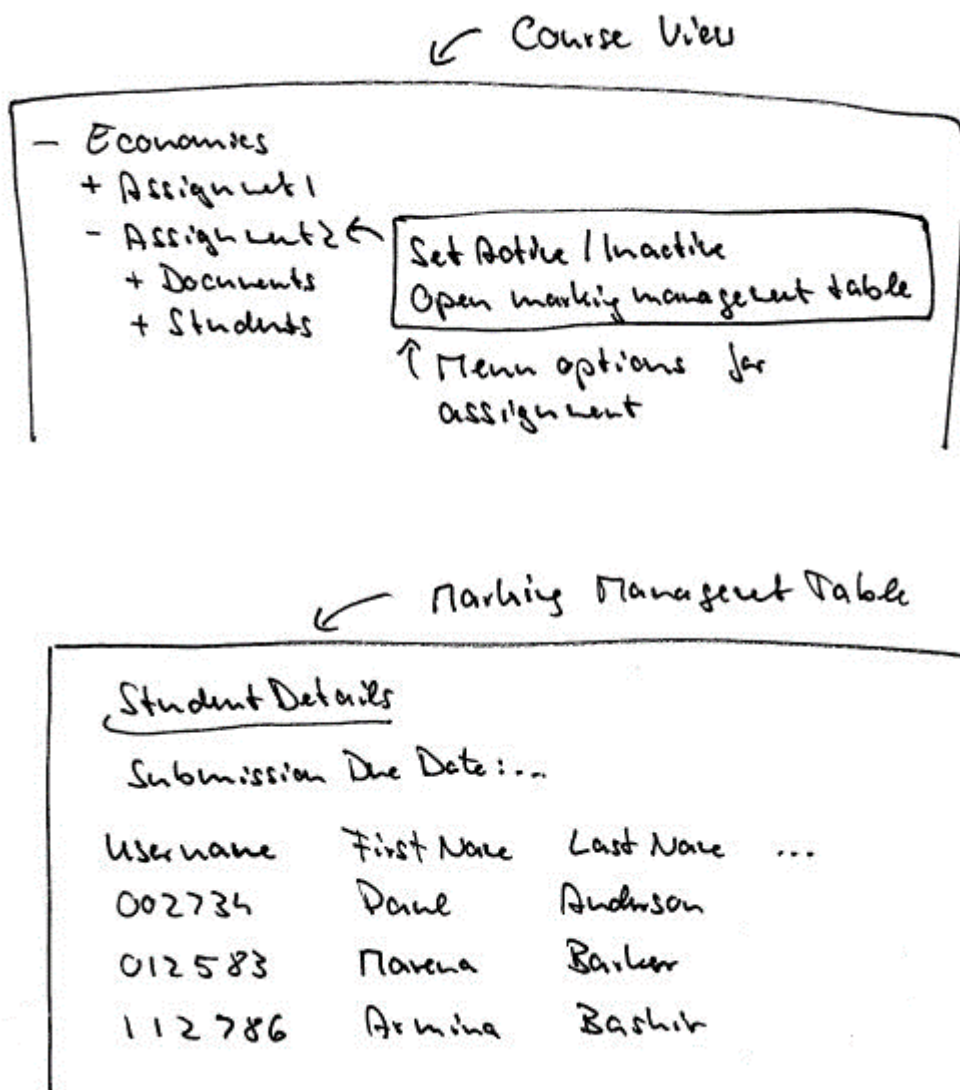 Course View
- Economics
+ Assignment 1
- Assignment 2
+ Documents
+ Students
Set Active / Inactive
Open marking management table
Menu options for
assignment
Marking Management Table
Student Details
Submission Due Date: ...
Username First Name Last Name ...
002734 Paul Anderson
012583 Marena Barker
112786 Armina Bashir